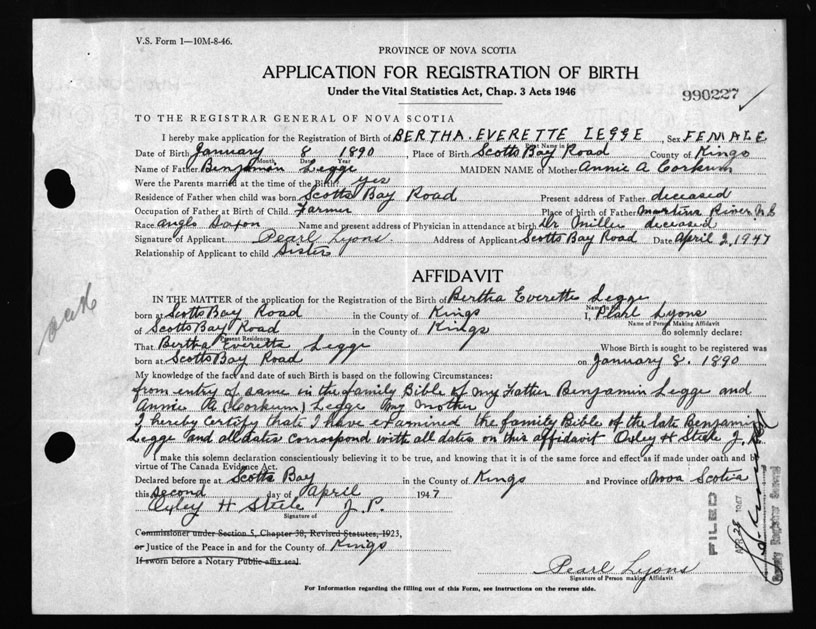 V.S. Form 1—10M-8-46.
PROVINCE OF NOVA SCOTIA
APPLICATION FOR REGISTRATION OF BIRTH
Under the Vital Statistics Act, Chap. 3 Acts 1946
990227
TO THE REGISTRAR GENERAL OF NOVA SCOTIA
I hereby make application for the Registration of Birth of BERTHA. EVERETTE LEGGE, Sex FEMALE
Date of Birth January 8 1890, Place of Birth Scotts Bay Road County of Kings
Month Date Year
Name of Father Benjamin Legge MAIDEN NAME of Mother Annie A Corkum
Were the Parents married at the time of the Birth yes
Residence of Father when child was born Scotts Bay Road Present address of Father deceased
Occupation of Father at Birth of Child Farmer Place of birth of Father Martins River N.S
Race anglo Saxon Name and present address of Physician in attendance at birth Dr Miller deceased
Signature of Applicant Pearl Lyons Address of Applicant Scotts Bay Road Date April 2, 1947
Relationship of Applicant to child Sister
AFFIDAVIT
IN THE MATTER of the application for the Registration of the Birth of Bertha Everette Legge
born at Scotts Bay Road in the County of Kings I, Pearl Lyons
Name of Person Making Affidavit
of Scotts Bay Road in the County of Kings do solemnly declare:
Present Residence
That Bertha Everette Legge Whose Birth is sought to be registered was
born at Scotts Bay Road on January 8. 1890
My knowledge of the fact and date of such Birth is based on the following Circumstances:
from entry of same in the family Bible of my Father Benjamin Legge and
Annie A (Corkum) Legge my mother
I hereby certify that I have examined the family Bible of the late Benjamin
Legge and all dates correspond with all dates on this affidavit Oxley H Steele J.P.
I make this solemn declaration conscientiously believing it to be true, and knowing that it is of the same force and effect as if made under oath and by
virtue of The Canada Evidence Act.
Declared before me at Scotts Bay in the County of Kings and Province of Nova Scotia
this second day of April 1947
Oxley H Steele J.P.
Signature of
Commissioner under Section 5, Chapter 38, Revised Statutes, 1923,
or Justice of the Peace in and for the County of Kings
If sworn before a Notary Public affix seal.
FILED
Deputy Registrar General
Pearl Lyons
Signature of Person making Affidavit
For Information regarding the filling out of this Form, see instructions on the reverse side.